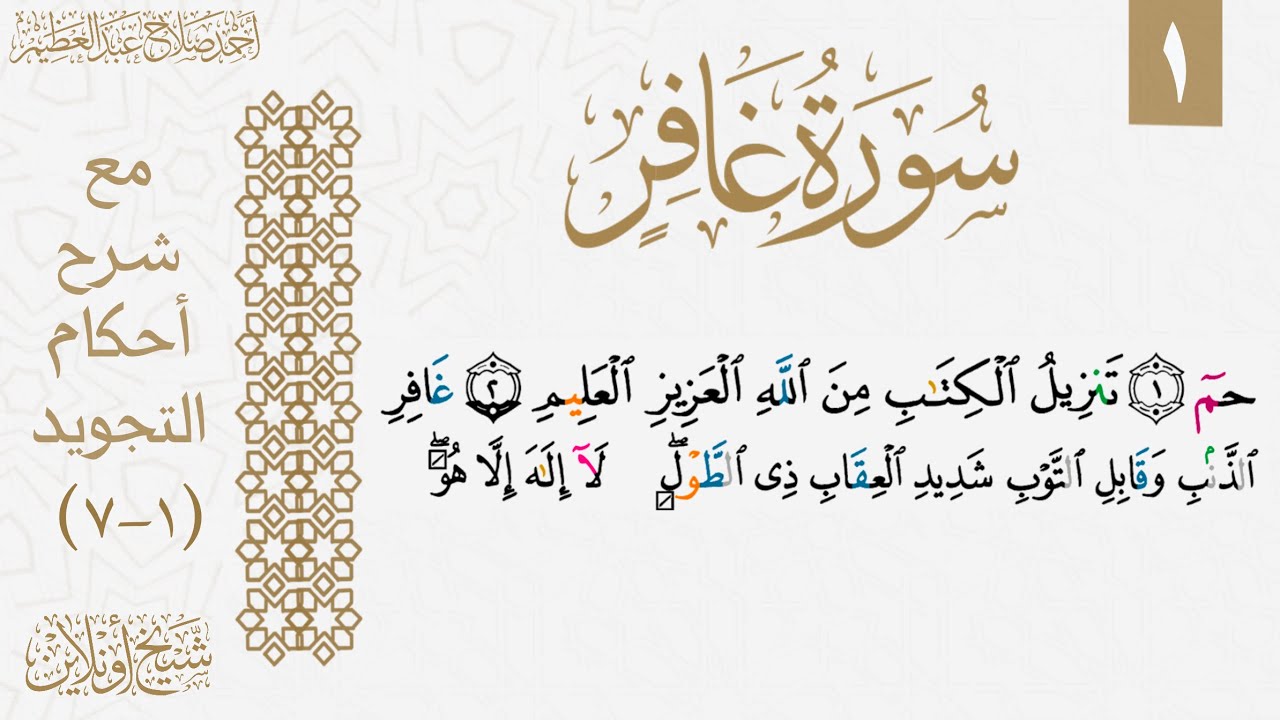 أحمد صلاح عبد العظيم
١
سُورَةُ غَافِرٍ
مع
شرح
أحكام
التجويد
(١-٧)
حمٓ ١ تَنزِيلُ ٱلْكِتَٰبِ مِنَ ٱللَّهِ ٱلْعَزِيزِ ٱلْعَلِيمِ ٢ غَافِرِ
ٱلذَّنۢبِ وَقَابِلِ ٱلتَّوْبِ شَدِيدِ ٱلْعِقَابِ ذِى ٱلطَّوْلِۖ لَآ إِلَٰهَ إِلَّا هُوَۖ
شيخ أونلاين